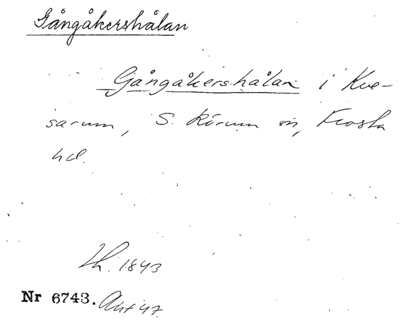 Gångåkershålan
Gångåkershålan i Kve-
sarum, S. Rörum sn, Frosta
hd.
1843
Nr 6743. Akt 47.